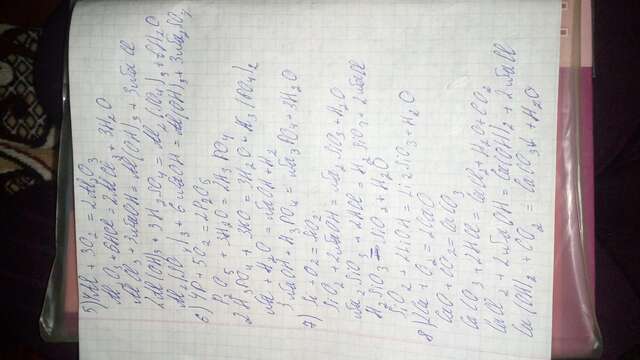 5) 4Al + 3O2 = 2Al2O3
Al2O3 + 6HCl = 2AlCl3 + 3H2O
AlCl3 + 3NaOH = Al(OH)3 + 3NaCl
2Al(OH)3 + 3H2SO4 = Al2(SO4)3 + 6H2O
Al2(SO4)3 + 6NaOH = 2Al(OH)3 + 3Na2SO4
6) 4P + 5O2 = 2P2O5
P2O5 + 3H2O = 2H3PO4
2H3PO4 + 3
Na + H2O = NaOH + H2
3NaOH + H3PO4 = Na3PO4 + 3H2O
7) Si + O2 = SiO2
SiO2 + 2NaOH = Na2SiO3 + H2O
Na2SiO3 + 2HCl = H2SiO3 + 2NaCl
H2SiO3 = SiO2 + H2O
SiO2 + 2LiOH = Li2SiO3 + H2O
8) 2Ca + O2 = 2CaO
CaO + CO2 = CaCO3
CaCO3 + 2HCl = CaCl2 + H2O + CO2
CaCl2 + 2NaOH = Ca(OH)2 + 2NaCl
Ca(OH)2 + CO2 = CaCO3↓ + H2O